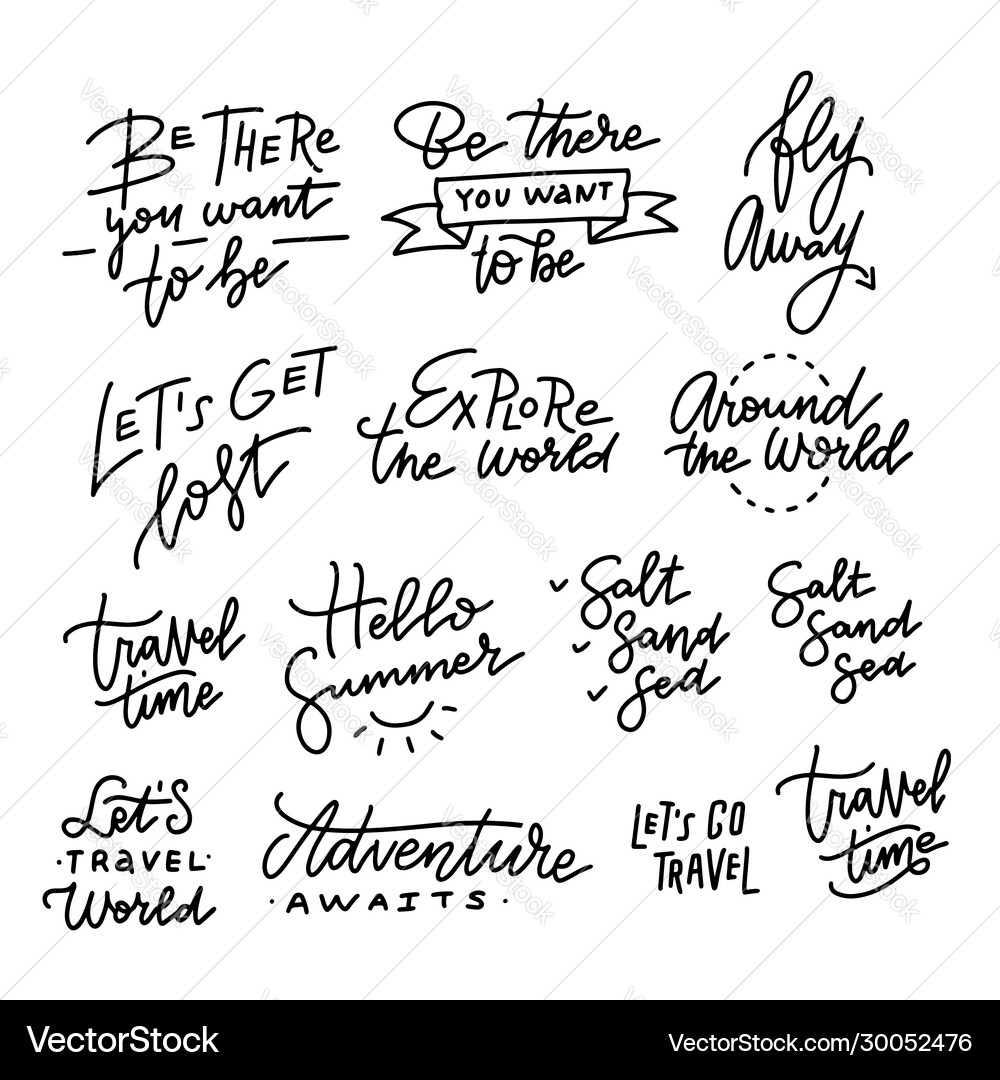 BE THERe
you want
to be
Be there
YOU WANT
to be
fly
away
LET'S GET
lost
ExPLORe
the world
Around
the World
travel
time
Hello
Summer
Salt
Sand
Sea
Salt
Sand
Sea
Let'S
·TRAVEL·
World
Adventure
·AWAITS·
LET'S GO
TRAVEL
travel
time
VectorStock®
VectorStock.com/30052476